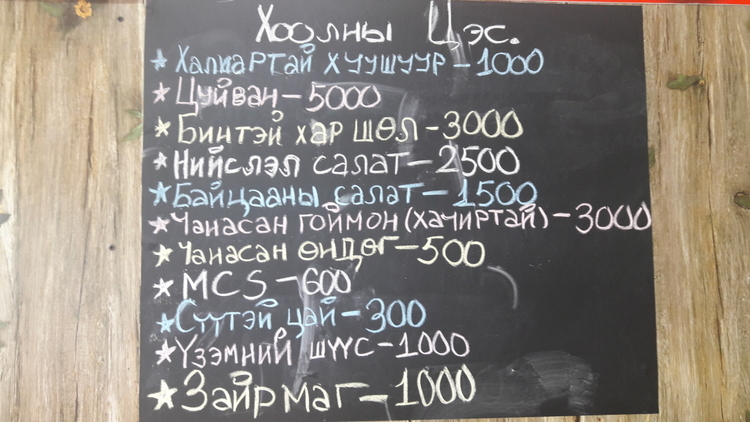 Хоолны Цэс.
★ Халиартай хуушуур - 1000
★ Цуйван - 5000
★ Бинтэй хар шөл - 3000
★ Нийслэл салат - 2500
★ Байцааны салат - 1500
★ Чанасан гоймон (хачиртай) - 3000
★ Чанасан өндөг - 500
★ MCS - 600
★ Сүүтэй цай - 300
★ Үзэмний шүүс - 1000
★ Зайрмаг - 1000